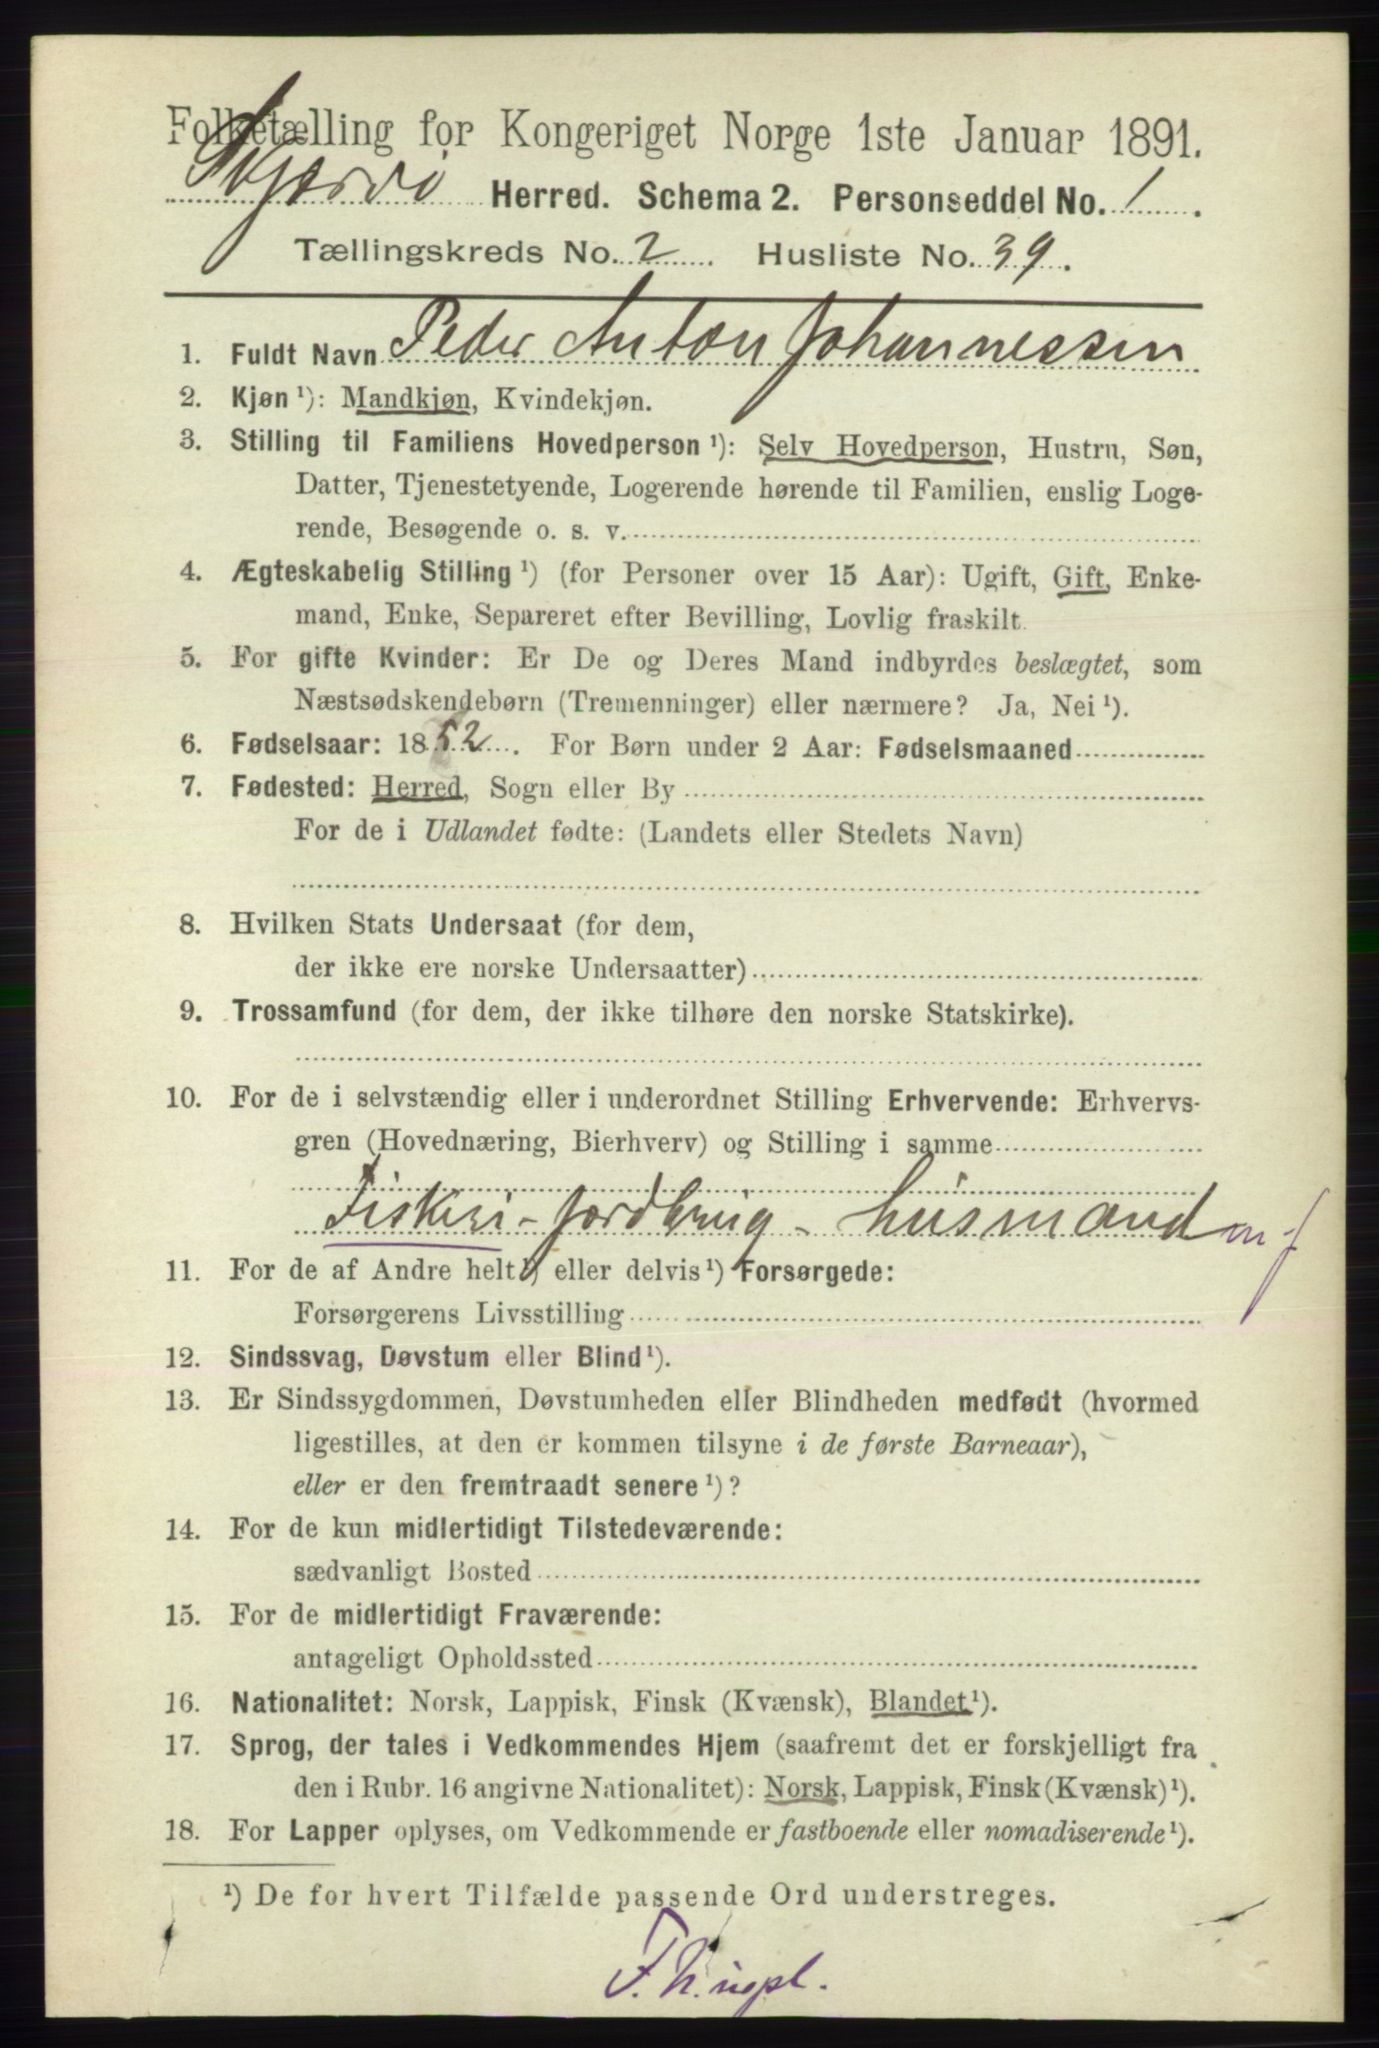 Folketælling for Kongeriget Norge 1ste Januar 1891.
Skjervø Herred. Schema 2. Personseddel No. 1.
Tællingskreds No. 2. Husliste No. 39.
1. Fuldt Navn Peder Anton Johannessen
2. Kjøn ¹): Mandkjøn, Kvindekjøn.
3. Stilling til Familiens Hovedperson ¹): Selv Hovedperson, Hustru, Søn,
Datter, Tjenestetyende, Logerende hørende til Familien, enslig Loge-
rende, Besøgende o. s. v.
4. Ægteskabelig Stilling ¹) (for Personer over 15 Aar): Ugift, Gift, Enke-
mand, Enke, Separeret efter Bevilling, Lovlig fraskilt.
5. For gifte Kvinder: Er De og Deres Mand indbyrdes beslægtet, som
Næstsødskendebørn (Tremenninger) eller nærmere? Ja, Nei ¹).
6. Fødselsaar: 1852. For Børn under 2 Aar: Fødselsmaaned
7. Fødested: Herred, Sogn eller By
For de i Udlandet fødte: (Landets eller Stedets Navn)
8. Hvilken Stats Undersaat (for dem,
der ikke ere norske Undersaatter)
9. Trossamfund (for dem, der ikke tilhøre den norske Statskirke).
10. For de i selvstændig eller i underordnet Stilling Erhvervende: Erhvervs-
gren (Hovednæring, Bierhverv) og Stilling i samme
Fiskeri - Jordbrug - husmand m j
11. For de af Andre helt ¹) eller delvis ¹) Forsørgede:
Forsørgerens Livsstilling
12. Sindssvag, Døvstum eller Blind ¹).
13. Er Sindssygdommen, Døvstumheden eller Blindheden medfødt (hvormed
ligestilles, at den er kommen tilsyne i de første Barneaar),
eller er den fremtraadt senere ¹)?
14. For de kun midlertidigt Tilstedeværende:
sædvanligt Bosted
15. For de midlertidigt Fraværende:
antageligt Opholdssted
16. Nationalitet: Norsk, Lappisk, Finsk (Kvænsk), Blandet ¹).
17. Sprog, der tales i Vedkommendes Hjem (saafremt det er forskjelligt fra
den i Rubr. 16 angivne Nationalitet): Norsk, Lappisk, Finsk (Kvænsk) ¹).
18. For Lapper oplyses, om Vedkommende er fastboende eller nomadiserende ¹).
¹) De for hvert Tilfælde passende Ord understreges.